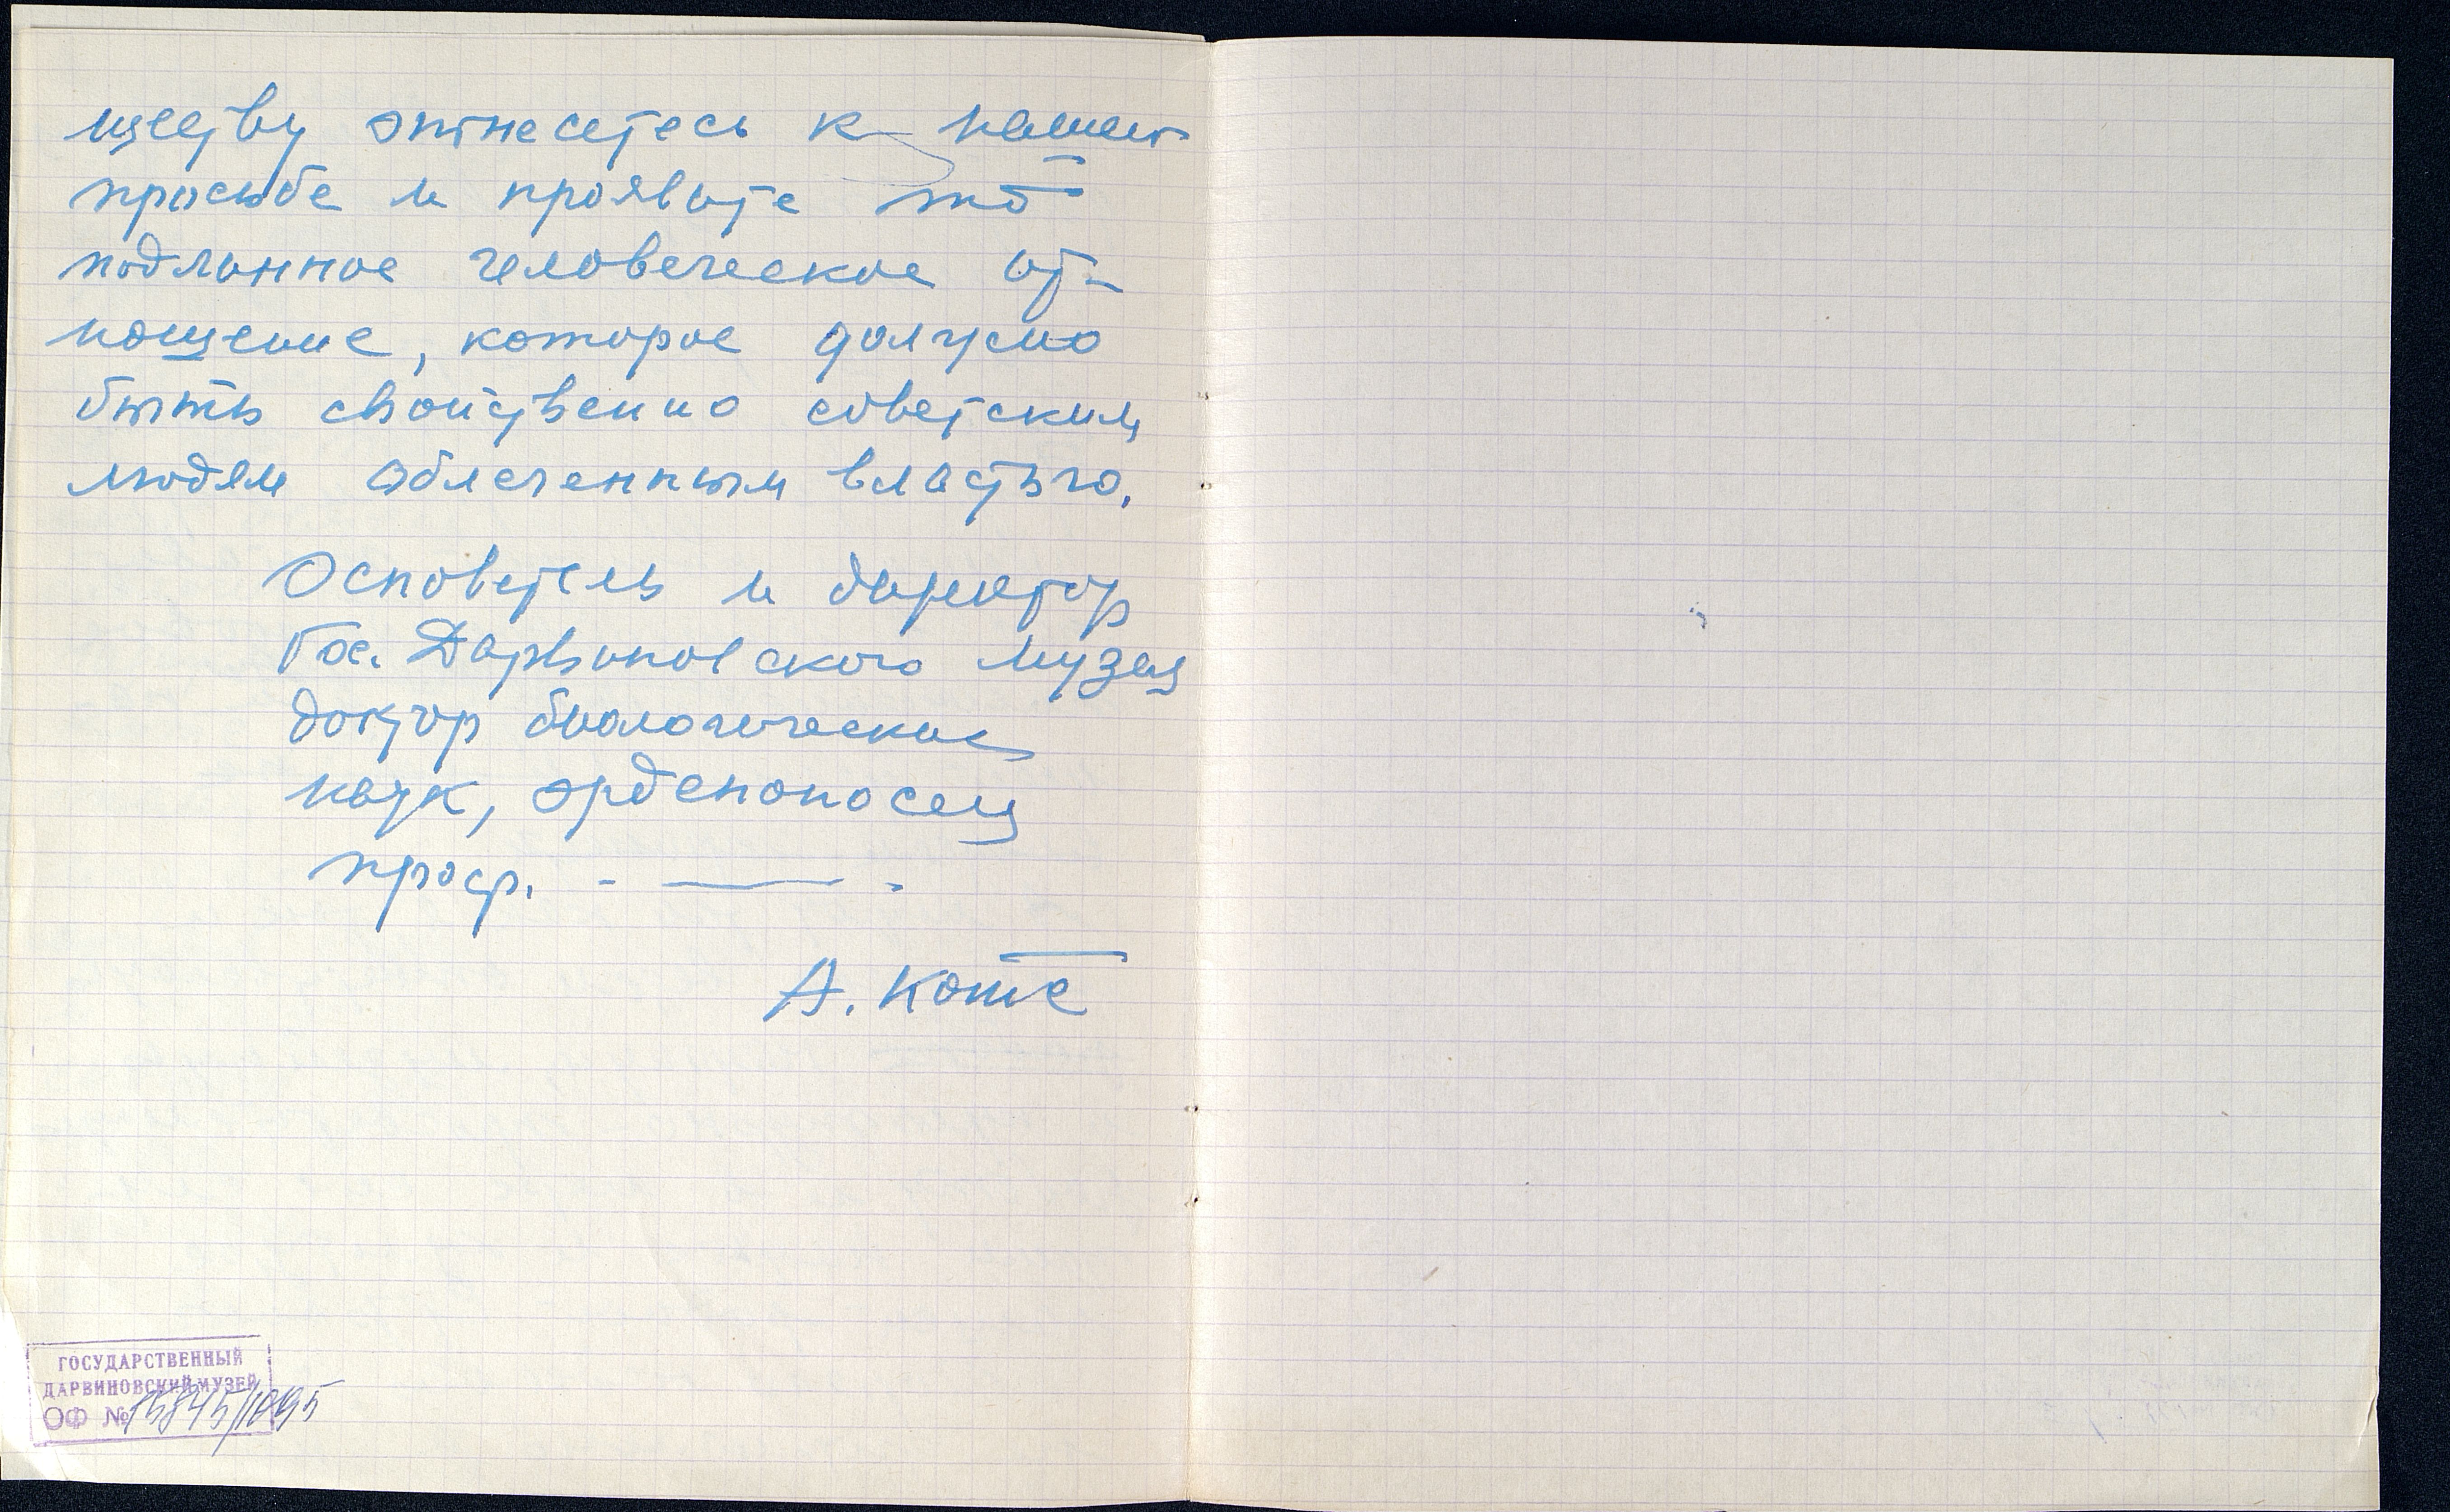 ществу отнесетесь к нашей
просьбе и проявите то
подлинное человеческое от-
ношение, которое должно
быть свойственно советским
людям облеченным властью.
Основатель и директор
Гос. Дарвиновского Музея
доктор биологических
наук, орденоносец
проф. - —— -
А. Котс
ГОСУДАРСТВЕННЫЙ
ДАРВИНОВСКИЙ МУЗЕЙ
ОФ №